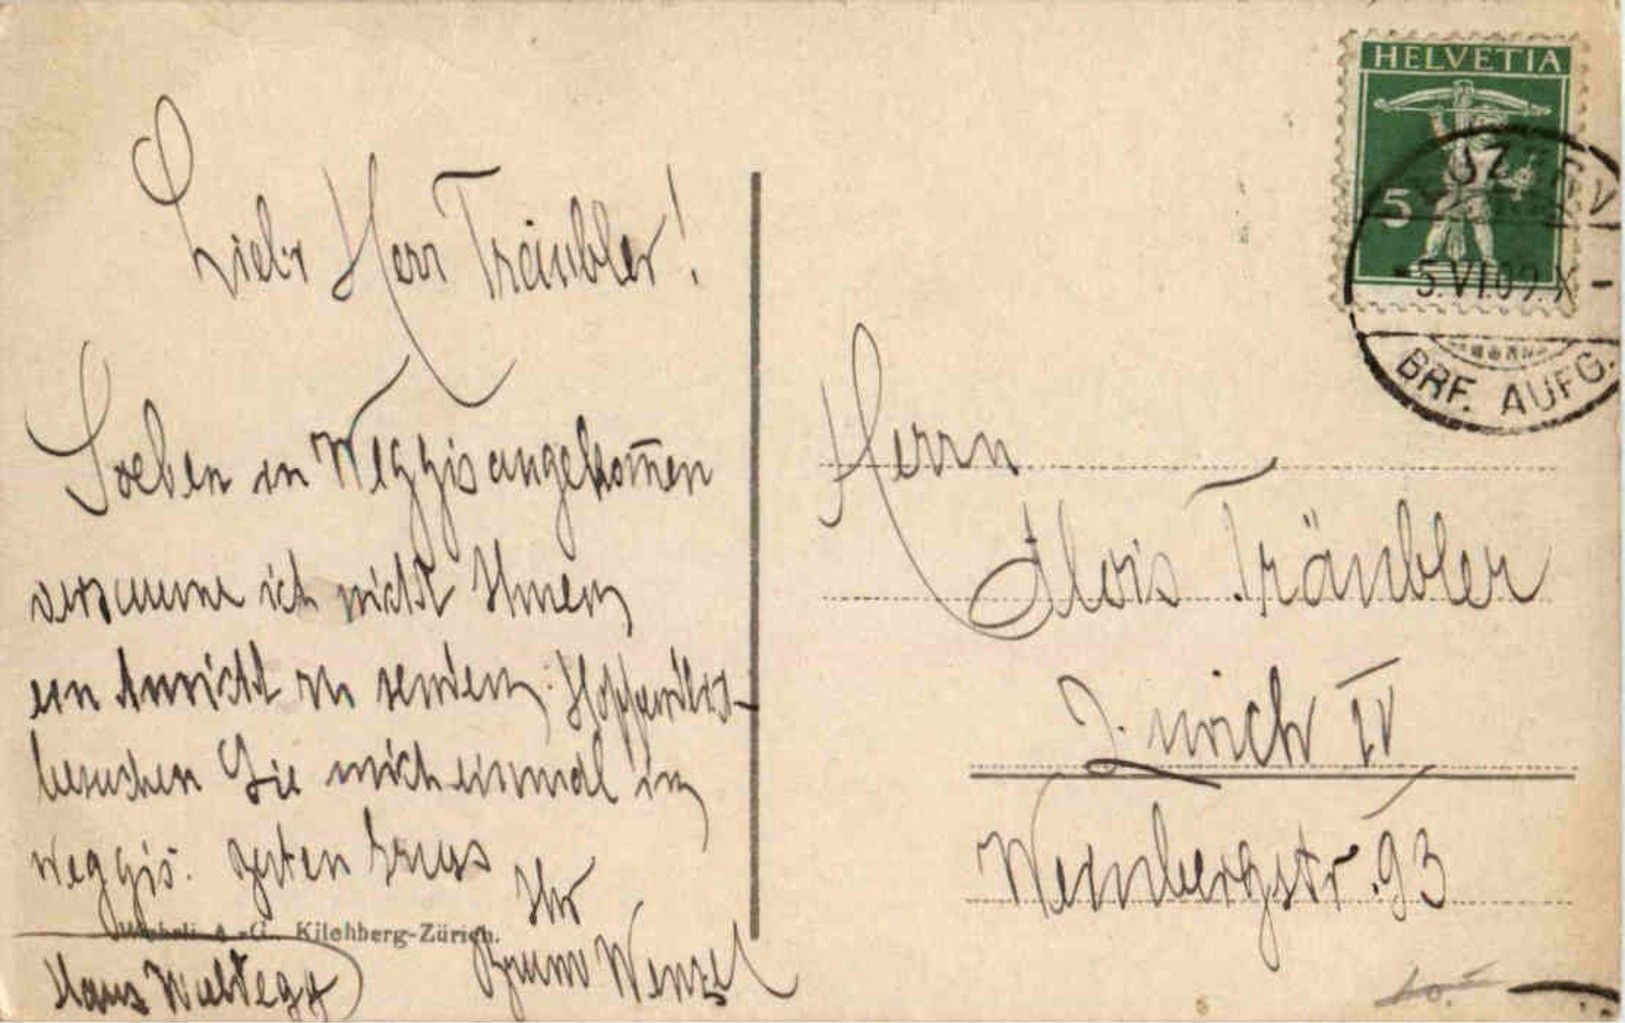 HELVETIA
5
LUZERN
5.VI.09.X-
BRF. AUFG.
Lieber Herr Träubler!
Soeben in Weggis angekom̅en
versäume ich nicht Ihnen
ein Ansicht zu senden. Hoffentlich
besuchen Sie mich einmal in
Weggis. Guten Gruss
Ihr
Bruno Wenzel
Wehrli A.-G., Kilchberg-Zürich.
Haus
Herrn
Alois Träubler
Zürich IV
Weinbergstr. 93